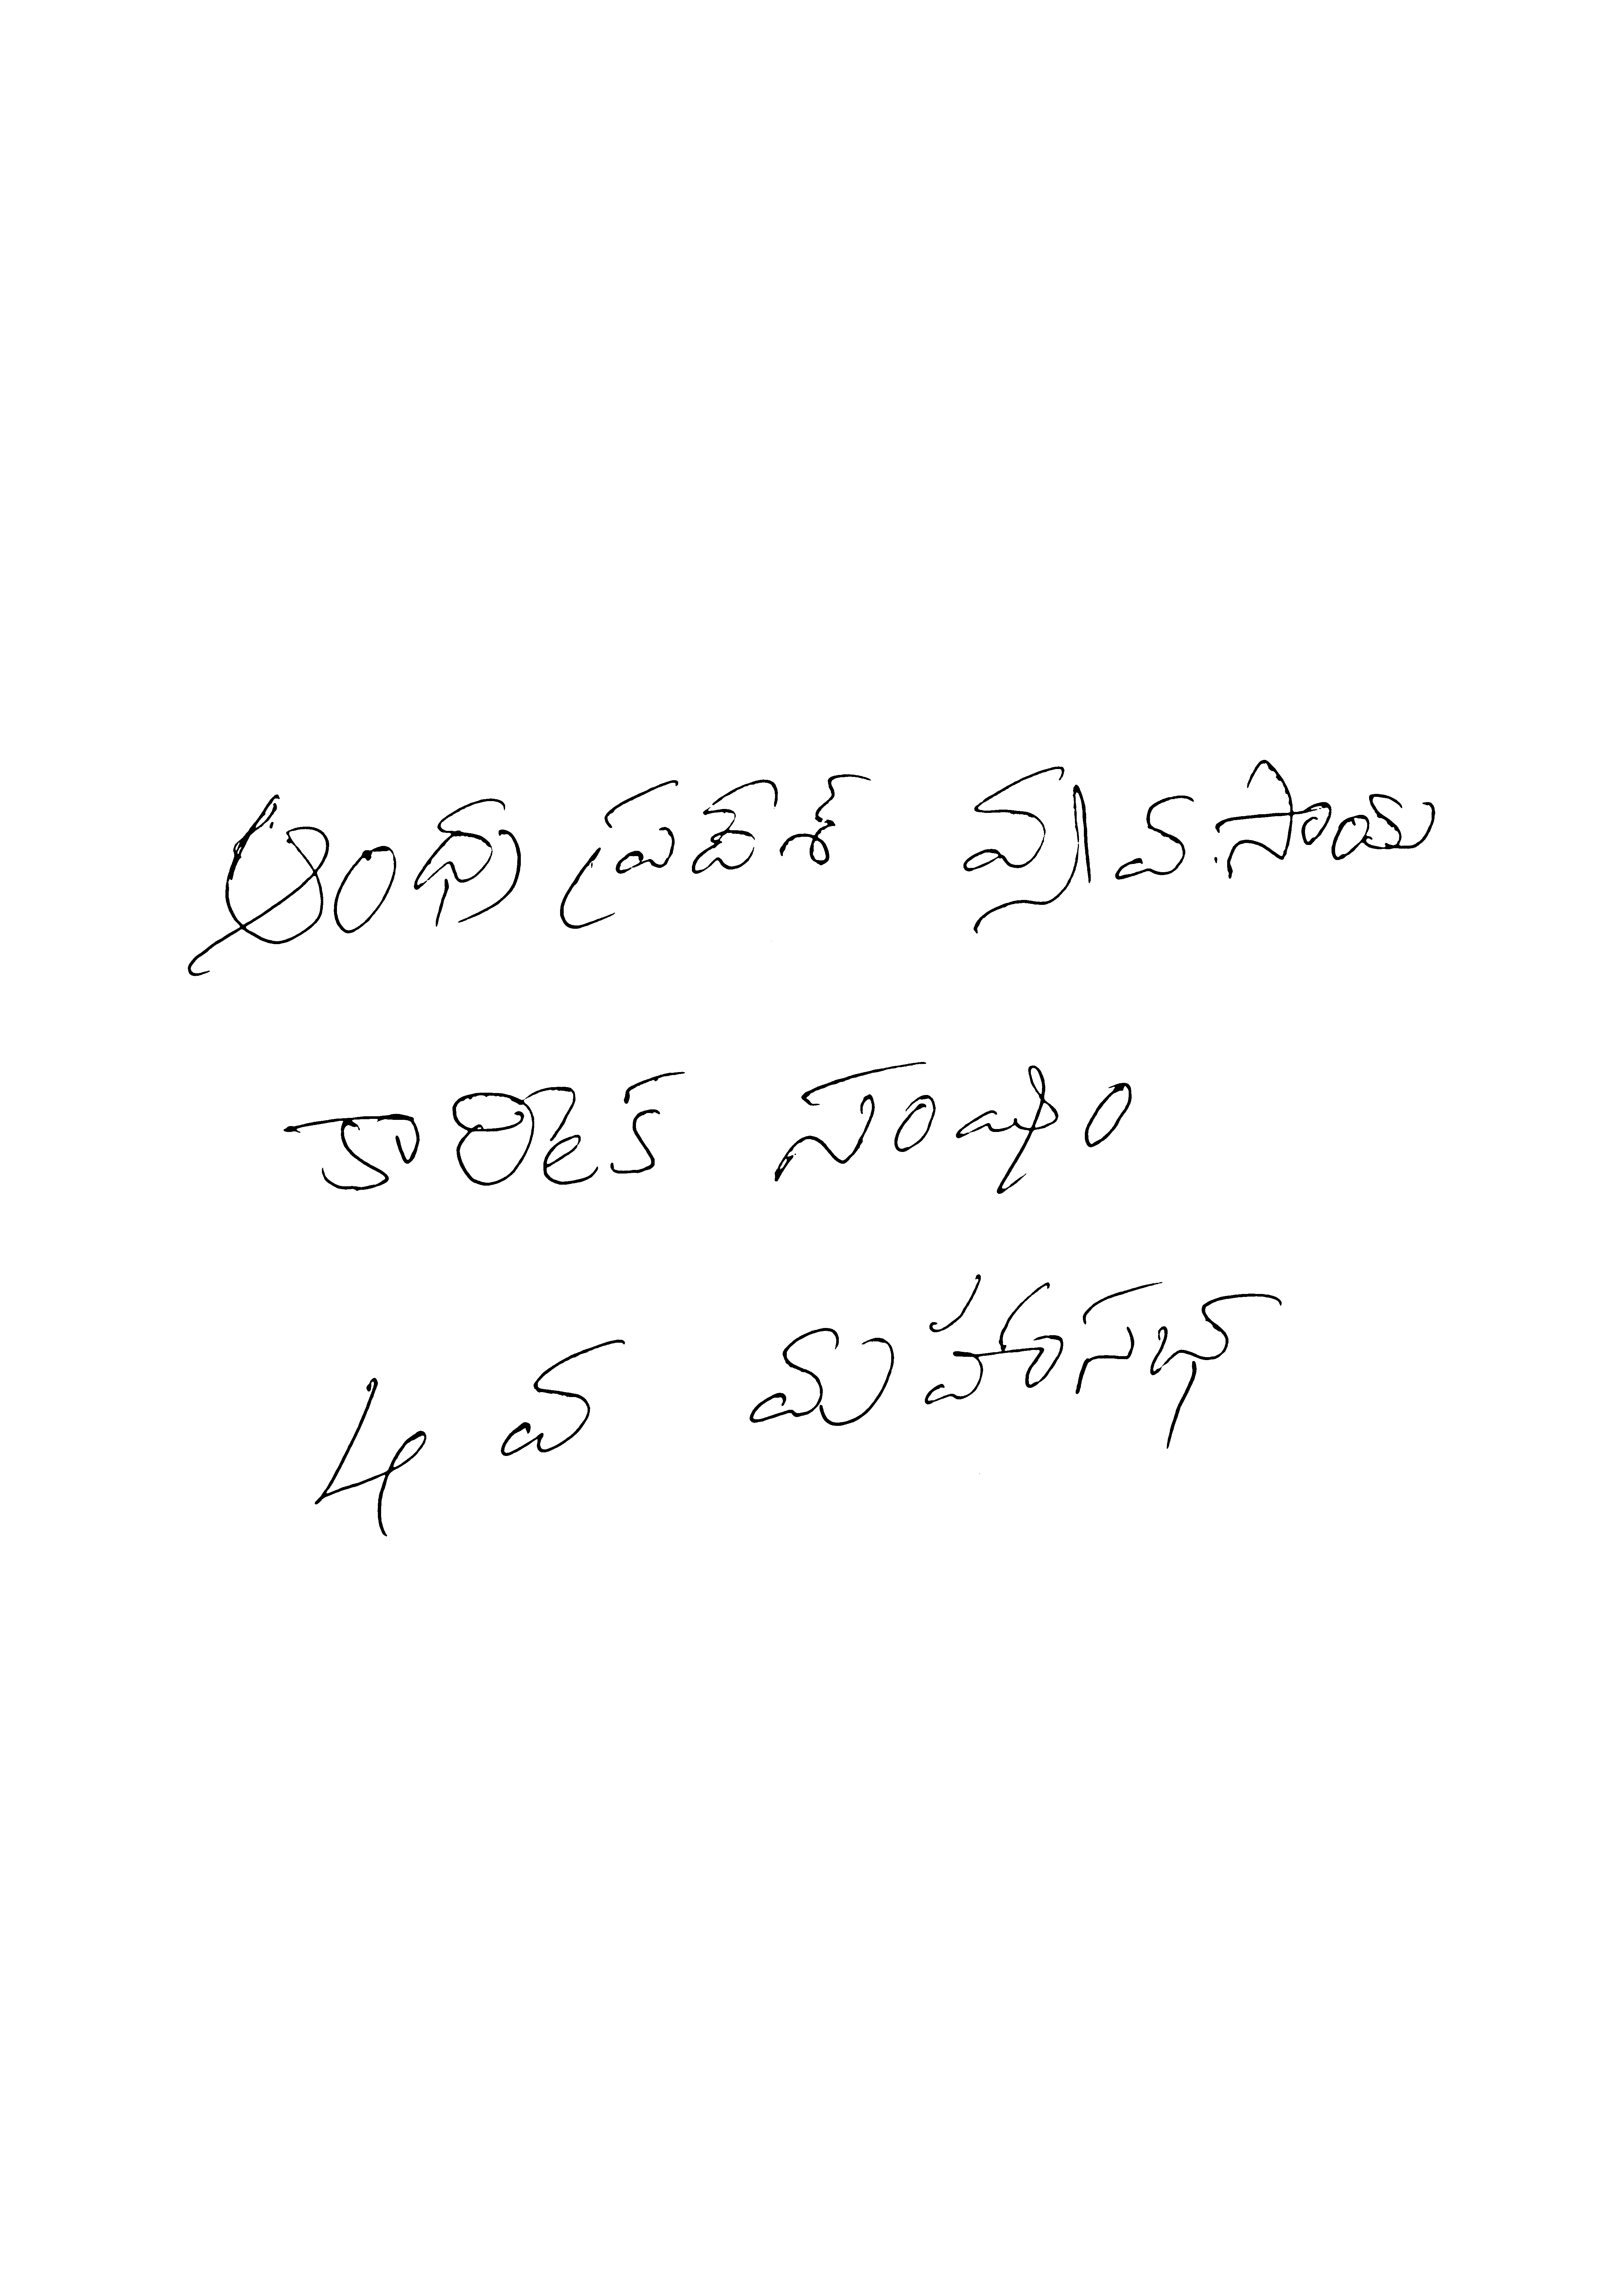 ఆంధ్రప్రదేశ్ వ్యవసాయ
కార్మిక సంఘం
4 వ మహాసభ